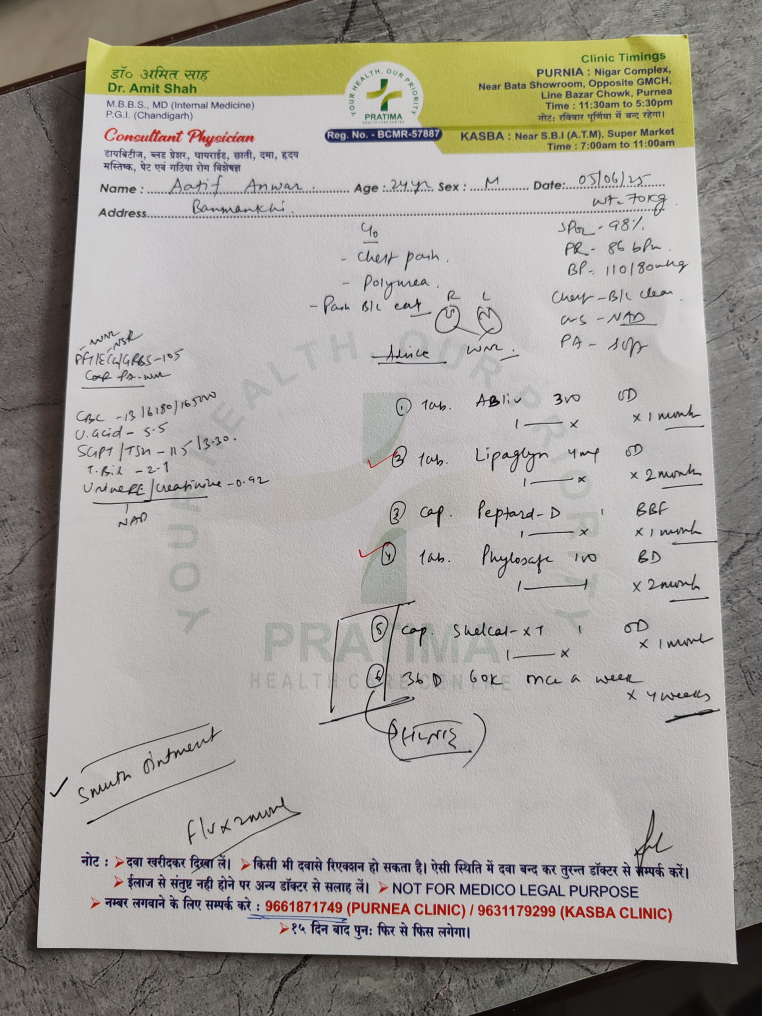 डॉ० अमित साह
Dr. Amit Shah
M.B.B.S., MD (Internal Medicine)
P.G.I. (Chandigarh)
Consultant Physician
डायबिटीज, ब्लड प्रेशर, थायराईड, छाती, दमा, हृदय
मस्तिष्क, पेट एवं गठिया रोग विशेषज्ञ
YOUR HEALTH, OUR PRIORITY
PRATIMA
HEALTH CARE CENTRE
Reg. No. - BCMR-57887
Clinic Timings
PURNIA : Nigar Complex,
Near Bata Showroom, Opposite GMCH,
Line Bazar Chowk, Purnea
Time : 11:30am to 5:30pm
नोट: रविवार पूर्णिया में बन्द रहेगा।
KASBA : Near S.B.I (A.T.M), Super Market
Time : 7:00am to 11:00am
Name : Aatif Anwar Age : 24 yr Sex : M Date: 05/06/25
Address Banmankhi
Wt- 70kg
C/o
- Chest pain.
- Polyurea.
- Pain B/L ear
R L
WNR.
SPO2 - 98%
PR - 86 bpm.
BP - 110/80mmhg
Chest - B/L clear
CVS - NAD
PA - soft
WNR NSR
PFT/ECG/GRBS-105
CBC - 13/6180/165000
U.acid - 5.5
SGPT/TSH - 115/3.30.
T.Bil - 2.1
Urine RE/Creatinine - 0.92
NAD
Advice
① Tab. Abliv 300 OD
1 — x x 1 month
② Tab. Lipaglyn 4mg OD
1 — x x 2 month
③ Cap. Peptard-D 1 BBF
1 — x x 1 month
④ Tab. Phylosafe 100 BD
1 — 1 x 2 month
⑤ Cap. Shelcal-XT 1 OD
1 — x x 1 month
⑥ D 60K once a week
x 4 weeks
Smuth Ointment
F/U x 2 month
YOUR HEALTH, OUR PRIORITY
PRATIMA
HEALTH CARE CENTRE
नोट : ➤दवा खरीदकर दिखा लें। ➤किसी भी दवासे रिएक्शन हो सकता है। ऐसी स्थिति में दवा बन्द कर तुरन्त डॉक्टर से सम्पर्क करें।
➤ईलाज से संतुष्ट नही होने पर अन्य डॉक्टर से सलाह लें। ➤ NOT FOR MEDICO LEGAL PURPOSE
➤ नम्बर लगवाने के लिए सम्पर्क करे : 9661871749 (PURNEA CLINIC) / 9631179299 (KASBA CLINIC)
➤१५ दिन बाद पुनः फिर से फिस लगेगा।